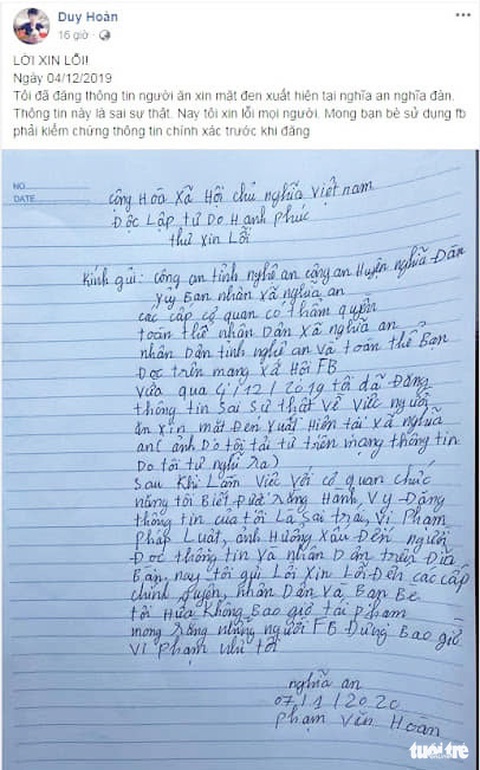 Duy Hoàn
16 giờ ·
LỜI XIN LỖI!
Ngày 04/12/2019
Tôi đã đăng thông tin người ăn xin mặt đen xuất hiện tại nghĩa an nghĩa đàn.
Thông tin này là sai sự thật. Nay tôi xin lỗi mọi người. Mong bạn bè sử dụng fb
phải kiểm chứng thông tin chính xác trước khi đăng
NO
DATE
Công Hoà Xã Hội chủ nghĩa Việt nam
Độc Lập tự Do Hạnh Phúc
thư xin Lỗi
Kính gửi: công an tỉnh nghệ an công an Huyện nghĩa Đàn
Ủy Ban nhân xã nghĩa an
các cấp cơ quan có thẩm quyền
toàn thể nhân Dân xã nghĩa an
nhân Dân tỉnh nghệ an và toàn thể Bạn
Đọc trên mạng xã Hội FB
Vừa qua 4/12/2019 tôi đã Đăng
thông tin Sai Sự thật về việc người
ăn xin mặt Đen xuất Hiện tại xã nghĩa
an (ảnh Do tôi tải từ trên mạng thông tin
Do tôi tự nghĩ ra)
Sau Khi Làm việc với cơ quan chức
năng tôi Biết Được rằng Hành Vy Đăng
thông tin của tôi Là sai trái, vi Phạm
Pháp Luật, ảnh Hưởng xấu Đến người
Đọc thông tin và nhân Dân trên Địa
Bàn, nay tôi gửi Lời xin Lỗi Đến các cấp
chính quyền, nhân Dân và Bạn Bè
tôi Hứa Không Bao giờ tái phạm
mong rằng những người FB Đừng Bao giờ
Vi phạm như tôi
nghĩa an
07/1/2020
phạm văn Hoàn
tuổi trẻ